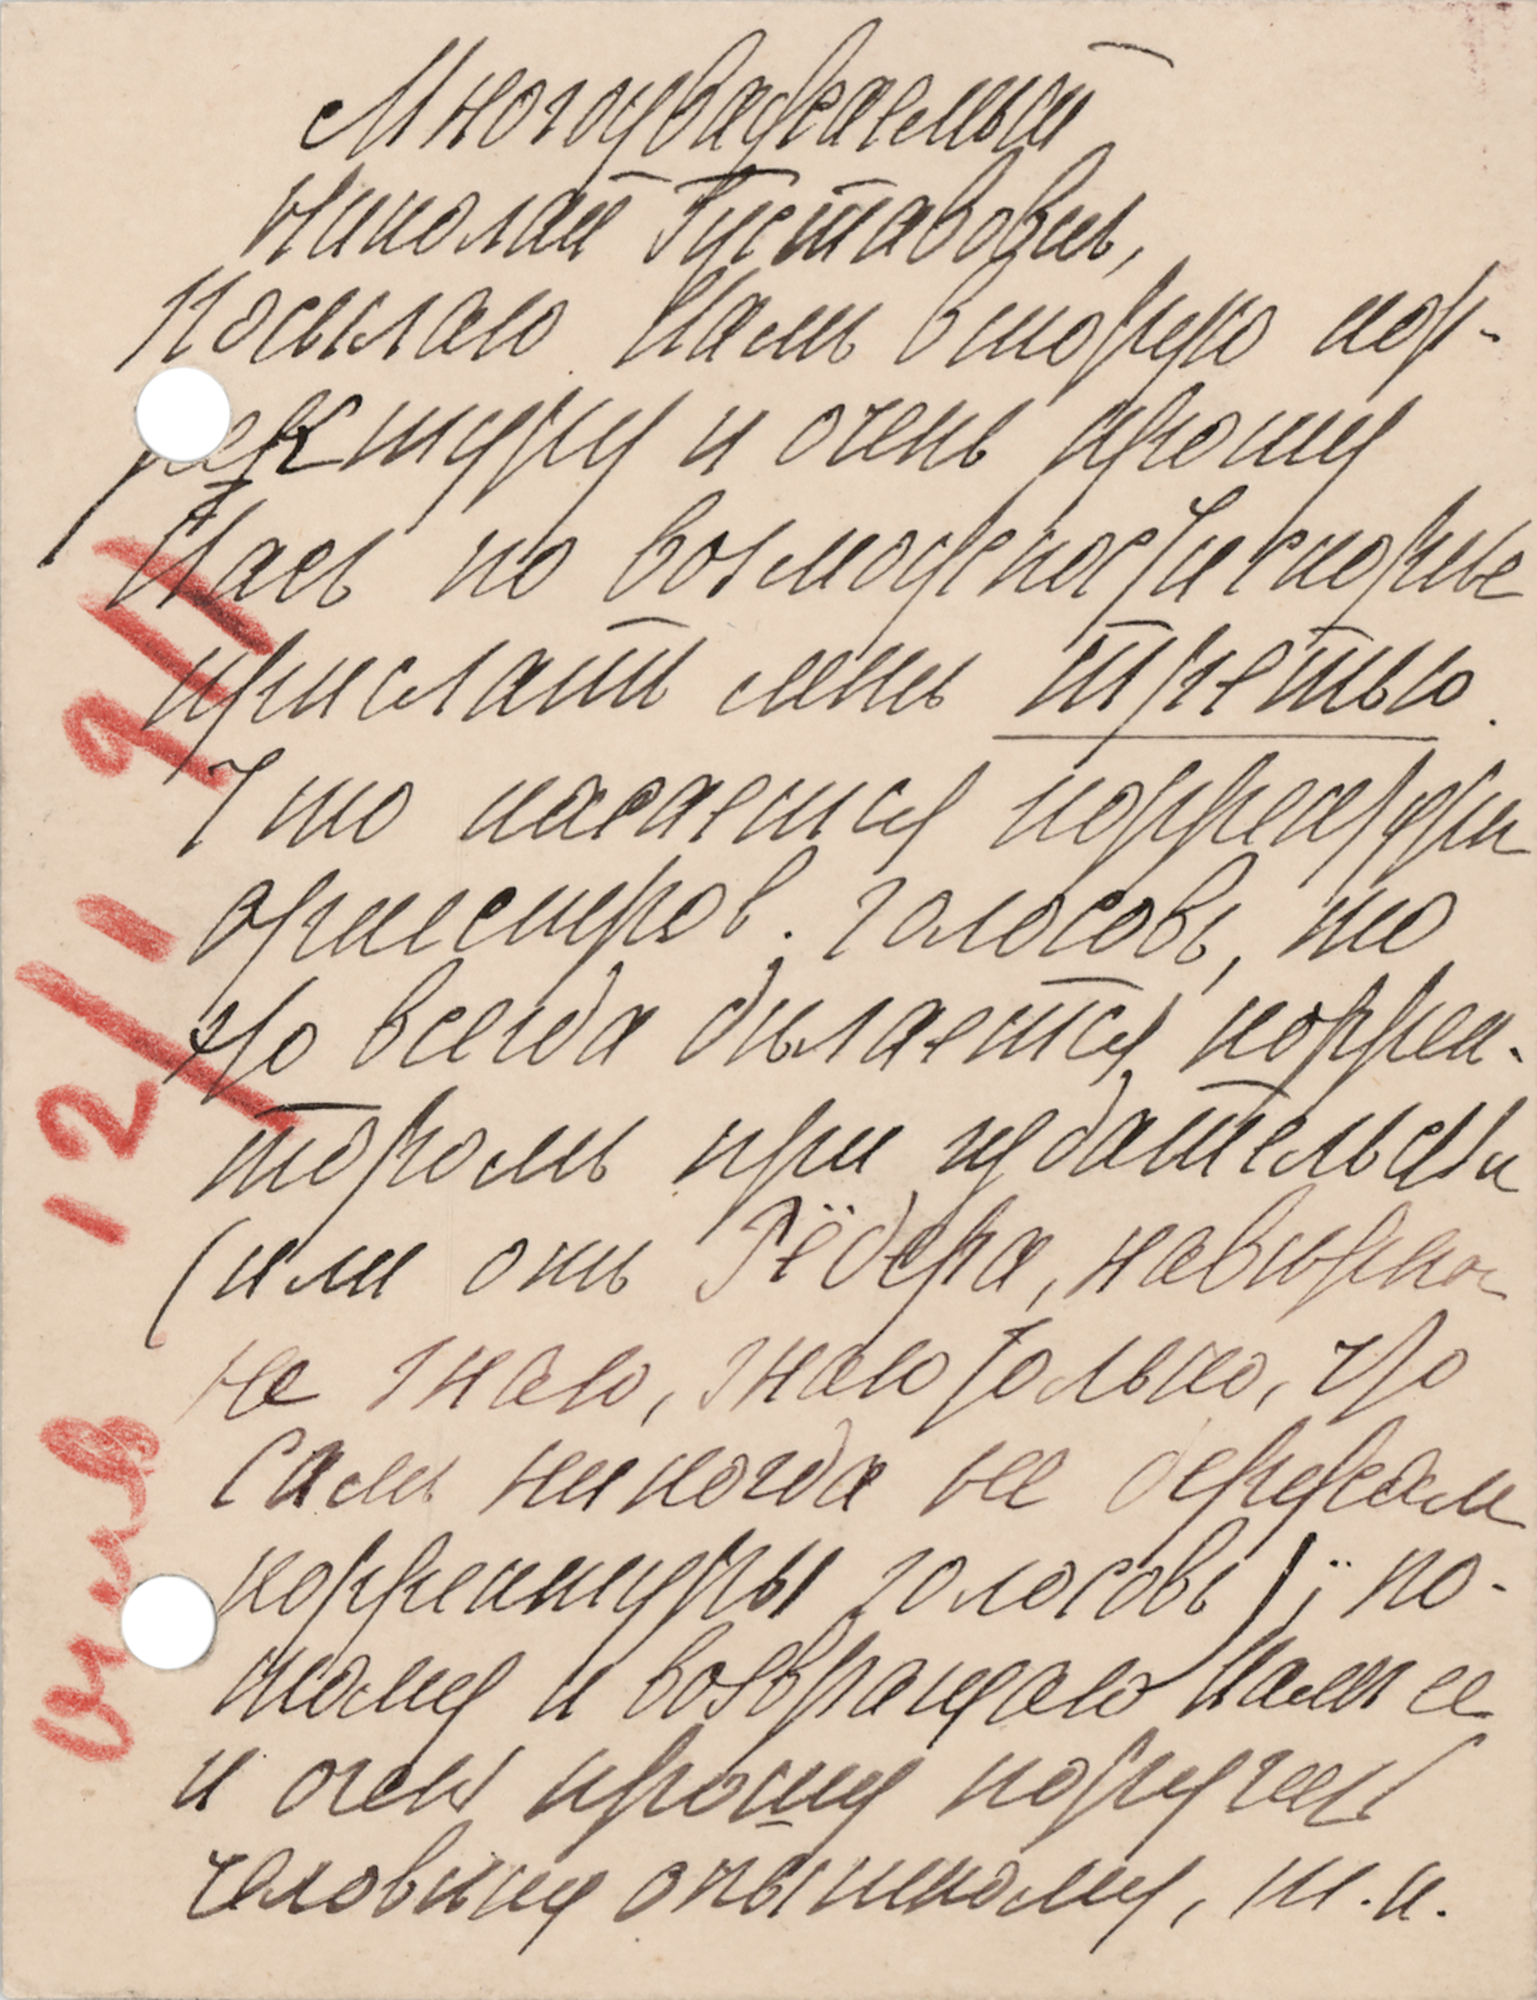 Многоуважаемый
Николай Густавовичъ,
Посылаю Вамъ вторую кор-
ректуру и очень прошу
Васъ по возможности скорѣе
прислать мнѣ третью.
Что касается корректуры
оркестров. голосовъ, то
это всегда дѣлается коррек-
торомъ при издательствѣ
(или онъ Рёдера, навѣрное
не знаю, знаю только, что
самъ никогда не держалъ
корректуры голосовъ); по-
тому и возвращаю Вамъ ее
и очень прошу поручить
человѣку опытному, т. к.
12/I 911